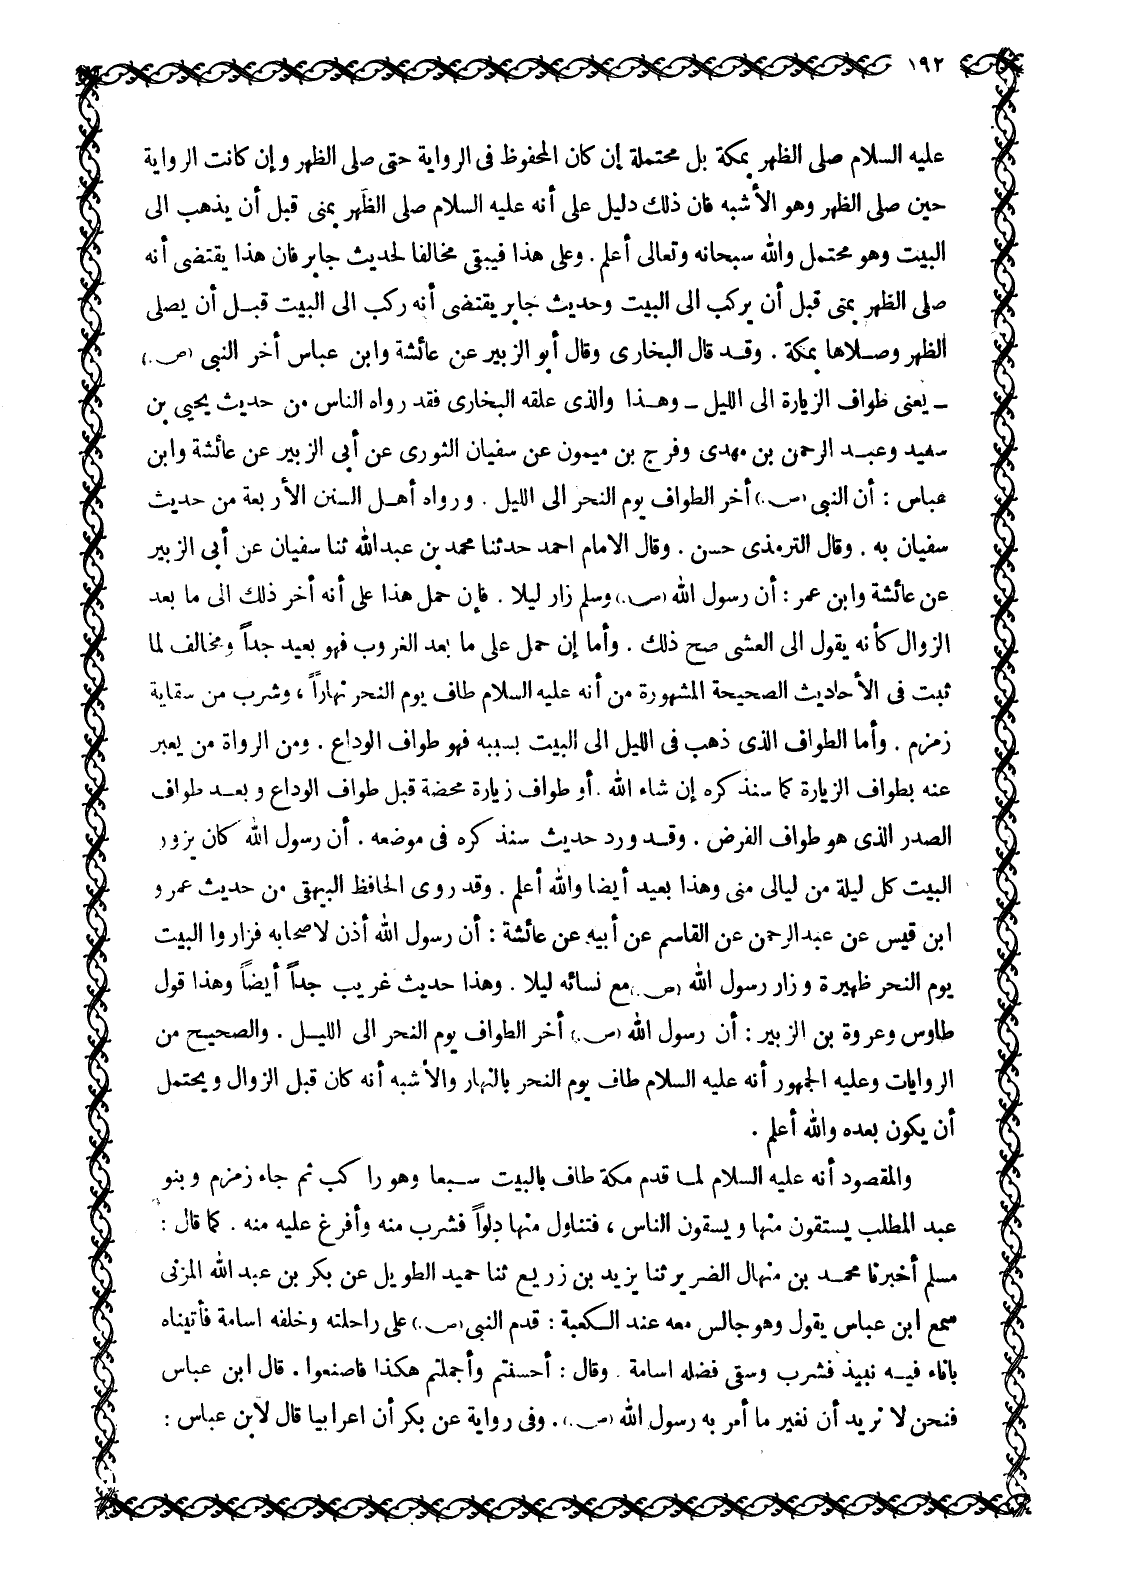 ١٩٢
عليه السلام صلى الظهر بمكة بل محتملة إن كان المحفوظ فى الرواية حتى صلى الظهر وإن كانت الرواية
حين صلى الظهر وهو الأشبه فان ذلك دليل على أنه عليه السلام صلى الظهر بمنى قبل أن يذهب الى
البيت وهو محتمل والله سبحانه وتعالى أعلم . وعلى هذا فيبقى مخالفا لحديث جابر فان هذا يقتضى أنه
صلى الظهر بمنى قبل أن يركب الى البيت وحديث جابر يقتضى أنه ركب الى البيت قبل أن يصلى
الظهر وصلاها بمكة . وقد قال البخارى وقال أبو الزبير عن عائشة وابن عباس أخر النبى (ص.)
ــ يعنى طواف الزيارة الى الليل ــ وهذا والذى علقه البخارى فقد رواه الناس من حديث يحيى بن
سعيد وعبد الرحمن بن مهدى وفرج بن ميمون عن سفيان الثورى عن أبى الزبير عن عائشة وابن
عباس : أن النبى (ص.) أخر الطواف يوم النحر الى الليل . ورواه أهل السنن الأربعة من حديث
سفيان به . وقال الترمذى حسن . وقال الامام احمد حدثنا محمد بن عبدالله ثنا سفيان عن أبى الزبير
عن عائشة وابن عمر : أن رسول الله (ص.) وسلم زار ليلا . فإن حمل هذا على أنه أخر ذلك الى ما بعد
الزوال كأنه يقول الى العشى صح ذلك . وأما إن حمل على ما بعد الغروب فهو بعيد جداً ومخالف لما
ثبت فى الأحاديث الصحيحة المشهورة من أنه عليه السلام طاف يوم النحر نهاراً ، وشرب من سقاية
زمزم . وأما الطواف الذى ذهب فى الليل الى البيت بسببه فهو طواف الوداع . ومن الرواة من يعبر
عنه بطواف الزيارة كما سنذكره إن شاء الله . أو طواف زيارة محضة قبل طواف الوداع وبعد طواف
الصدر الذى هو طواف الفرض . وقد ورد حديث سنذكره فى موضعه . أن رسول الله كان يزور
البيت كل ليلة من ليالى منى وهذا بعيد أيضا والله أعلم . وقد روى الحافظ البيهقى من حديث عمرو
ابن قيس عن عبدالرحمن عن القاسم عن أبيه عن عائشة : أن رسول الله أذن لاصحابه فزاروا البيت
يوم النحر ظهيرة وزار رسول الله (ص.) مع نسائه ليلا . وهذا حديث غريب جداً أيضاً وهذا قول
طاوس وعروة بن الزبير : أن رسول الله (ص.) أخر الطواف يوم النحر الى الليل . والصحيح من
الروايات وعليه الجمهور أنه عليه السلام طاف يوم النحر بالنهار والأشبه أنه كان قبل الزوال ويحتمل
أن يكون بعده والله أعلم .
والمقصود أنه عليه السلام لما قدم مكة طاف بالبيت سبعا وهو راكب ثم جاء زمزم وبنو
عبد المطلب يستقون منها ويسقون الناس ، فتناول منها دلواً فشرب منه وأفرغ عليه منه . كما قال :
مسلم أخبرنا محمد بن منهال الضرير ثنا يزيد بن زريع ثنا حميد الطويل عن بكر بن عبد الله المزنى
سمع ابن عباس يقول وهو جالس معه عند الكعبة : قدم النبى (ص.) على راحلته وخلفه اسامة فأتيناه
باناء فيه نبيذ فشرب وسقى فضله اسامة . وقال : أحسنتم وأجملتم هكذا فاصنعوا . قال ابن عباس
فنحن لا نريد أن نغير ما أمر به رسول الله (ص.) . وفى رواية عن بكر أن اعرابيا قال لابن عباس :